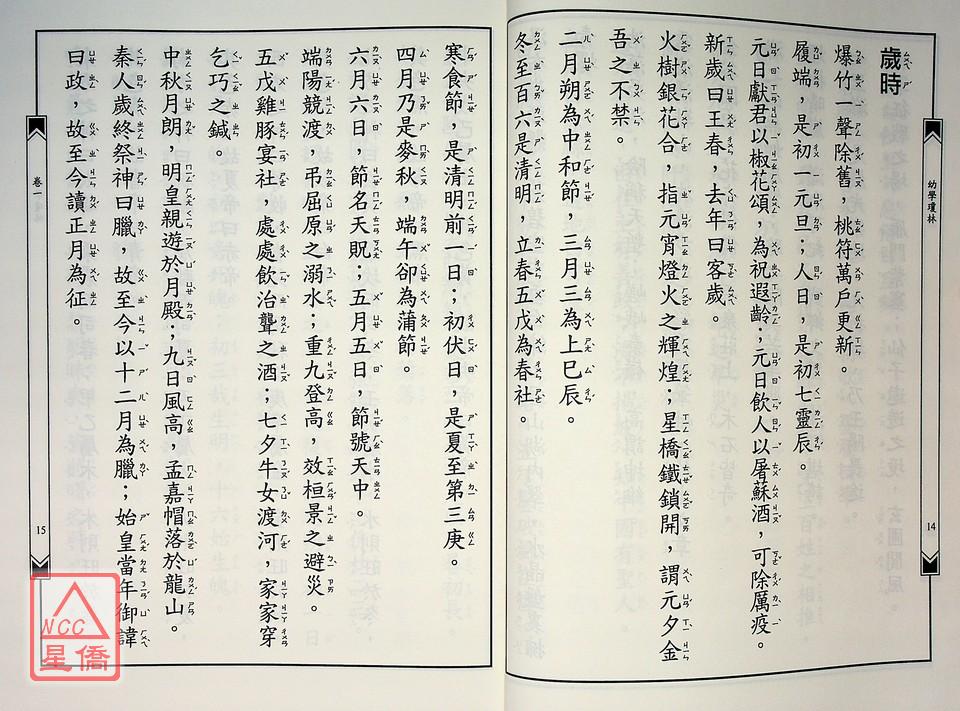 幼學瓊林
14
歲時
爆竹一聲除舊，桃符萬戶更新。
履端，是初一元旦；人日，是初七靈辰。
元日獻君以椒花頌，為祝遐齡；元日飲人以屠蘇酒，可除厲疫。
新歲曰王春，去年曰客歲。
火樹銀花合，指元宵燈火之輝煌；星橋鐵鎖開，謂元夕金
吾之不禁。
二月朔為中和節，三月三為上巳辰。
冬至百六是清明，立春五戊為春社。
寒食節，是清明前一日；初伏日，是夏至第三庚。
四月乃是麥秋，端午卻為蒲節。
六月六日，節名天貺；五月五日，節號天中。
端陽競渡，弔屈原之溺水；重九登高，效桓景之避災。
五戊雞豚宴社，處處飲治聾之酒；七夕牛女渡河，家家穿
乞巧之鍼。
中秋月朗，明皇親遊於月殿；九日風高，孟嘉帽落於龍山。
秦人歲終祭神曰臘，故至今以十二月為臘；始皇當年御諱
曰政，故至今讀正月為征。
卷一
15
WCC
星僑